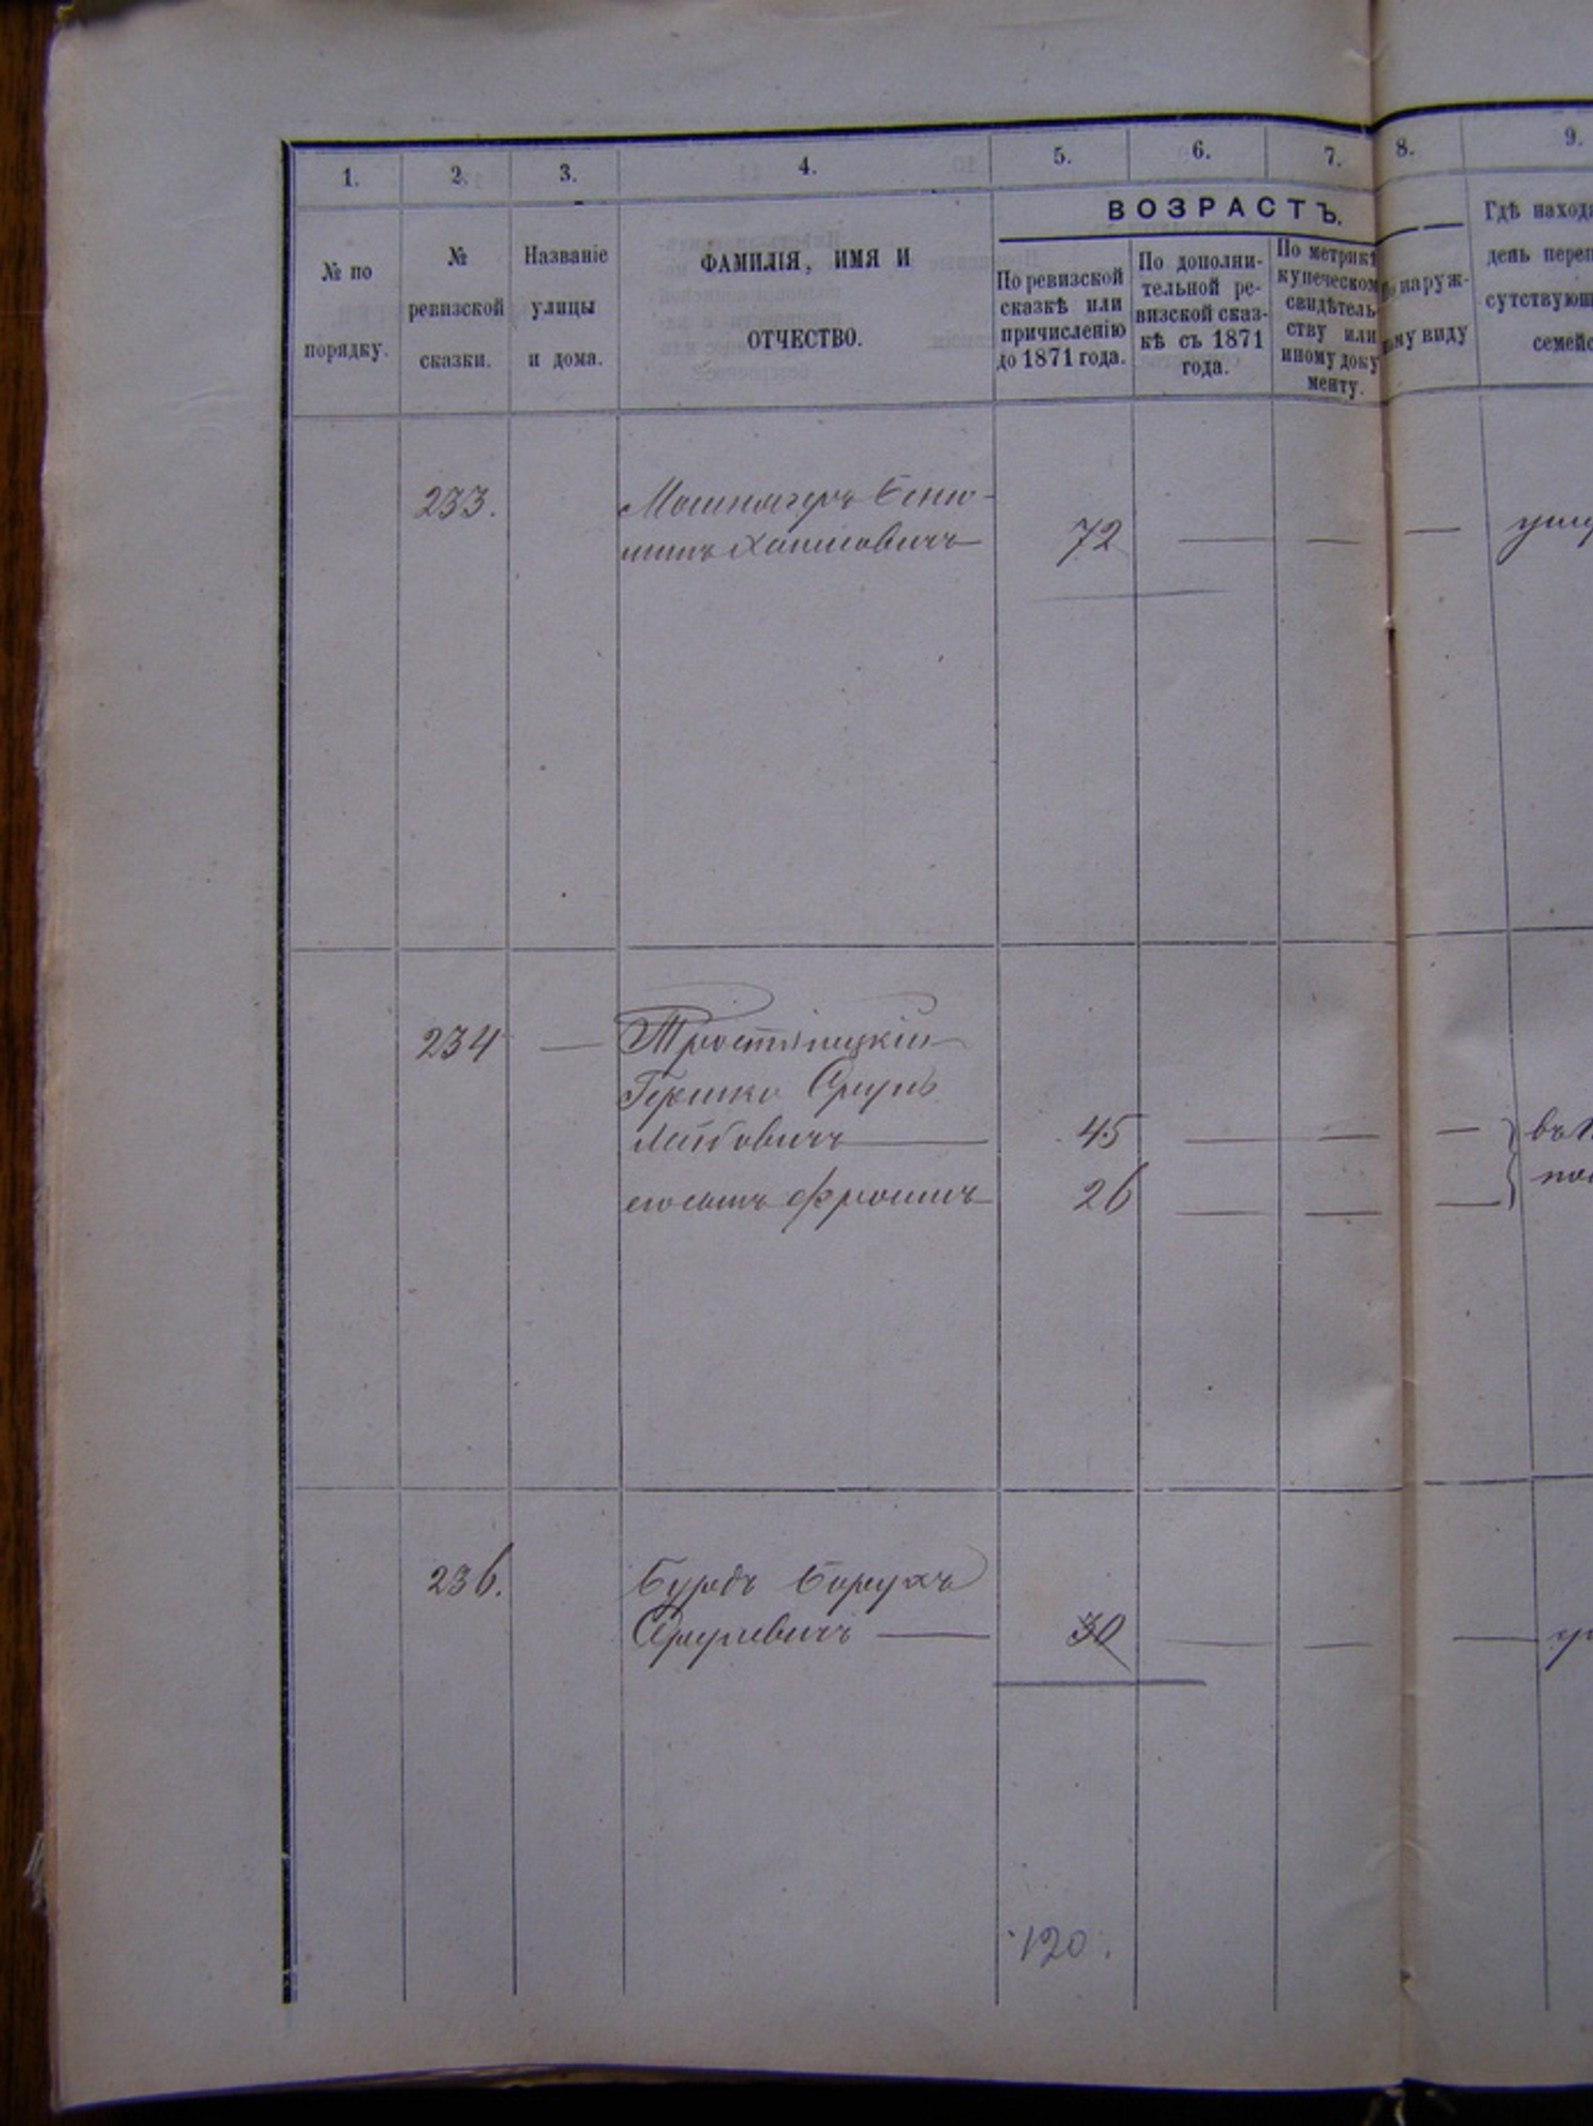 1. 2. 3. 4. 5. 6. 7. 8. 9.
№ по порядку.
№ ревизской сказки.
Названіе улицы и дома.
ФАМИЛІЯ, ИМЯ И
ОТЧЕСТВО.
ВОЗРАСТЪ.
По ревизской
сказкѣ или
причисленію
до 1871 года.
По дополни-
тельной ре-
визской сказ-
кѣ съ 1871
года.
По метрикѣ
купеческом
свидѣтель
ству или
иному доку
менту.
наруж-
ному виду
Гдѣ находи
день переп
сутствующ
семейс
233.
Беню-
минъ Хаимовичъ 72 — — —
234 — Тростянецкій
Гершко Срулъ
Лейбовичъ — 45 — — — въ
его сынъ Фроимъ 26 — — —
236. Бурдъ Борухъ
Срулевичъ — 30 — — —
120.